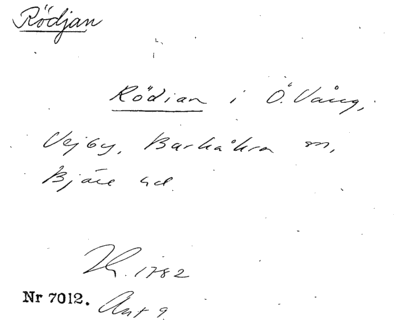 Rödjan
Rödian i Ö. Vång,
Vejby, Barkåkra sn,
Bjäre hd.
1782
Nr 7012. Akt 9